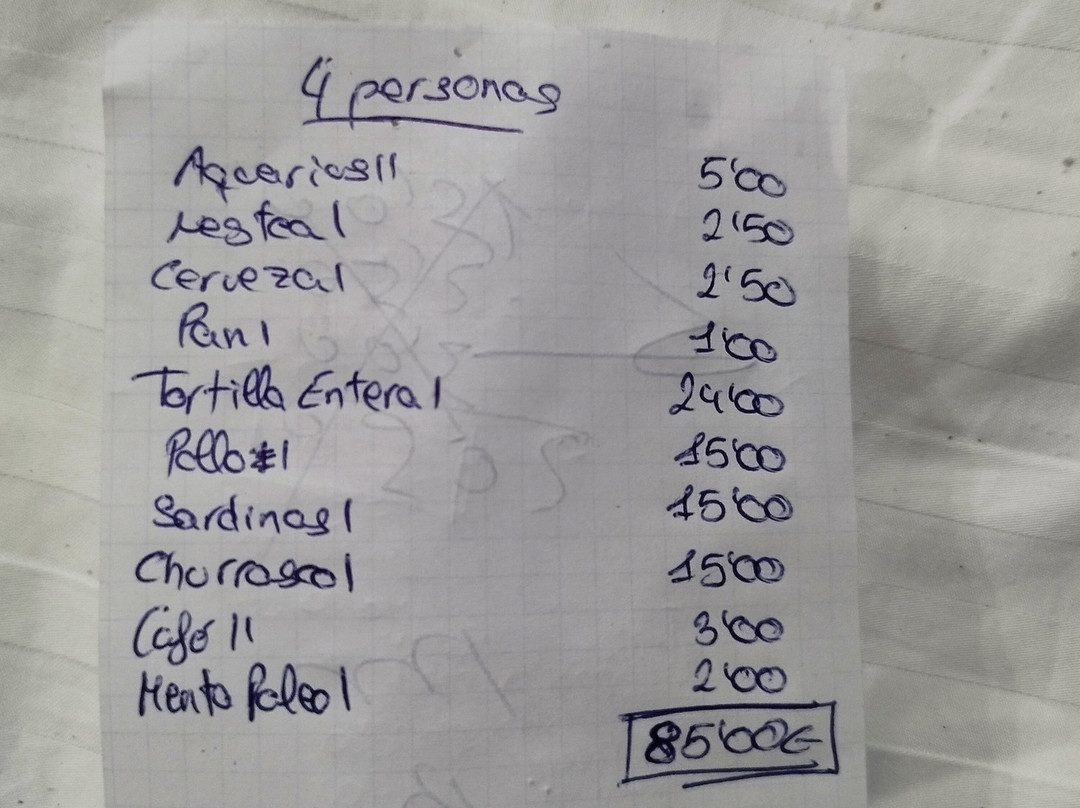 4 personas
Aquarios II 5'00
Nestea I 2'50
Cerveza I 2'50
Pan I 1'00
Tortilla Entera I 24'00
Pollo I 15'00
Sardinas I 15'00
Churrasco I 15'00
Café II 3'00
Menta Poleo I 2'00
85'00€